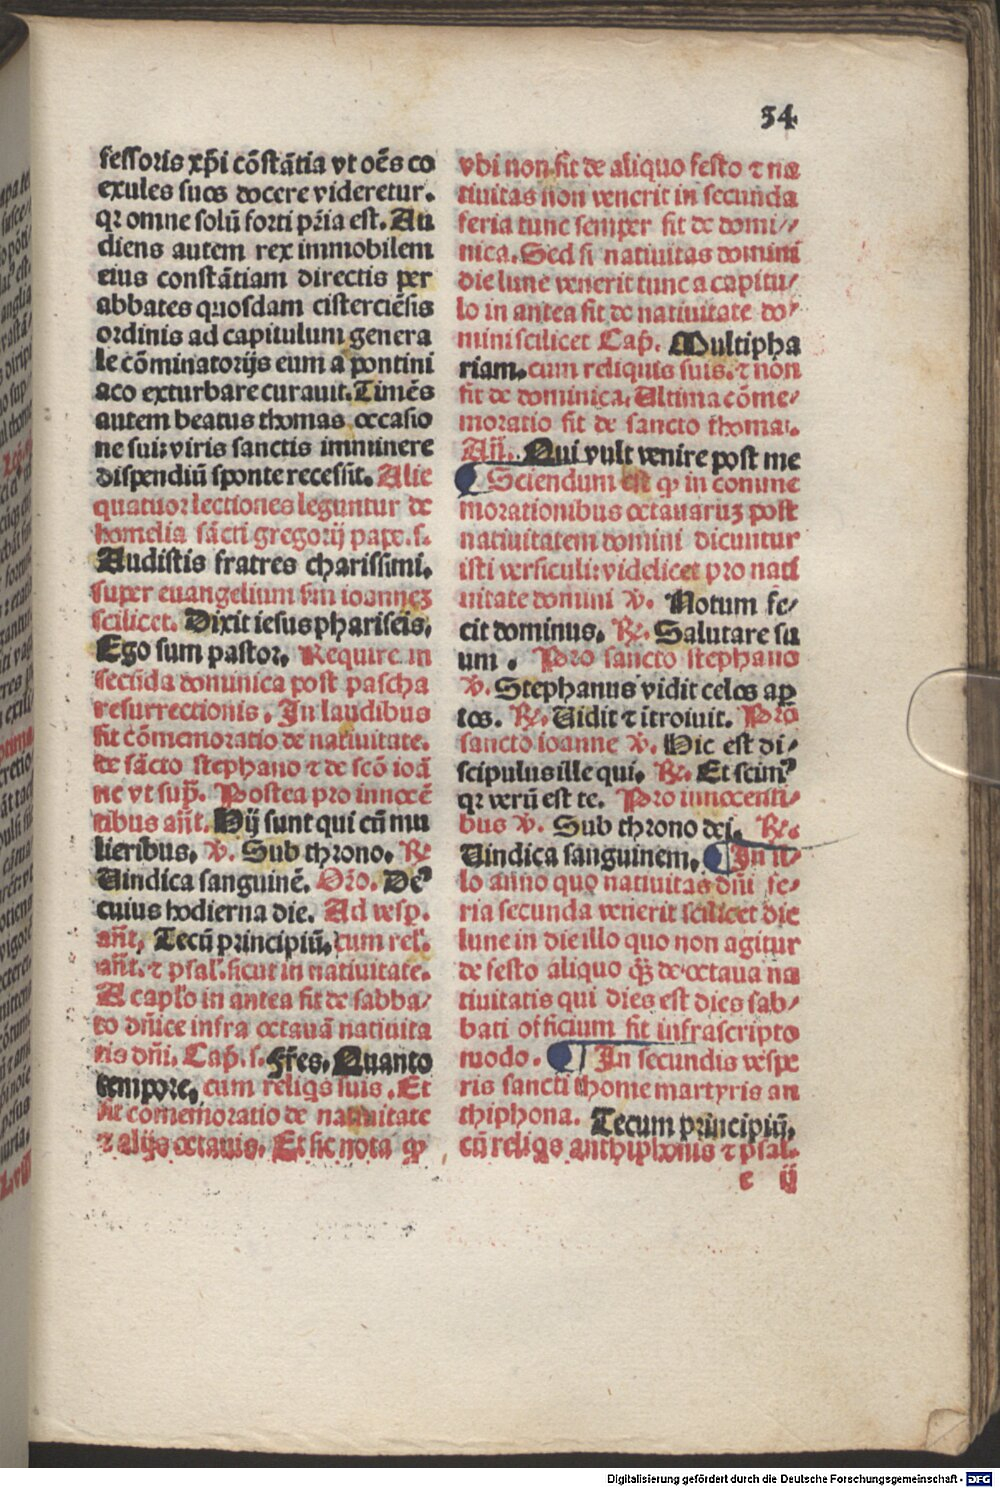 54
fessoris xp̄i cōstātia vt oēs co
exules suos docere videretur.
qr omne solū forti pr̄ia est. Au
diens autem rex immobilem
eius constātiam directis per
abbates quosdam cisterciēsis
ordinis ad capitulum genera
le cōminatorijs eum a pontini
aco exturbare curauit. Timēs
autem beatus thomas occasio
ne sui: viris sanctis imminere
dispendiū sponte recessit. Alie
quatuor lectiones leguntur de
homelia sācti gregorij pape. s.
Audistis fratres charissimi.
super euangelium sm̄ ioannez
scilicet. Dixit iesus phariseis.
Ego sum pastor. Require in
secūda dominica post pascha
resurrectionis. In laudibus
fit cōmemoratio de natiuitate.
de sācto stephano ⁊ de scō ioā
ne vt sup̄. Postea pro innocē
tibus an̄t. Hij sunt qui cū mu
lieribus. ℣. Sub throno. ℟
Uindica sanguinē. Oro. De⁹
cuius hodierna die. Ad vesp.
an̄t. Tecū principiū. cum rel.
an̄t. ⁊ psal. sicut in natiuitate.
A caplo in antea fit de sabba/
to dn̄ice infra octauā natiuita
tis dn̄i. Cap̄. s. Fr̄es. Quanto
tempore. cum reliqs suis. Et
fit comemoratio de natiuitate
⁊ alijs octauis. Et sic nota ꝙ
vbi non fit de aliquo festo ⁊ na
tiuitas non venerit in secunda
feria tunc semper fit de domi//
nica. Sed si natiuitas domini
die lune venerit tunc a capitu/
lo in antea fit de natiuitate do/
mini scilicet Cap̄. Multipha
riam. cum reliquis suis. ⁊ non
fit de dominica. Ultima cōme/
moratio fit de sancto thoma.
An̄. Qui vult venire post me
Sciendum est ꝙ in comme
morationibus octauaruz post
natiuitatem domini dicuntur
isti versiculi: videlicet pro nati
uitate domini ℣. Notum fe/
cit dominus. ℟. Salutare su
um. Pro sancto stephano
℣. Stephanus vidit celos ap
tos. ℟. Uidit ⁊ ītroiuit. Pro
sancto ioanne ℣. Hic est di/
scipulus ille qui. ℟. Et scim⁹
qr verū est te. Pro innocenti/
bus ℣. Sub throno dei. ℟.
Uindica sanguinem. In il/
lo anno quo natiuitas dn̄i fe/
ria secunda venerit scilicet die
lune in die illo quo non agitur
de festo aliquo qꝫ de octaua na
tiuitatis qui dies est dies sab/
bati officium fit infrascripto
modo. In secundis vespe
ris sancti thome martyris an
thiphona. Tecum principiū.
cū reliqs anthiphonis ⁊ psal.
e ij
Digitalisierung gefördert durch die Deutsche Forschungsgemeinschaft - DFG